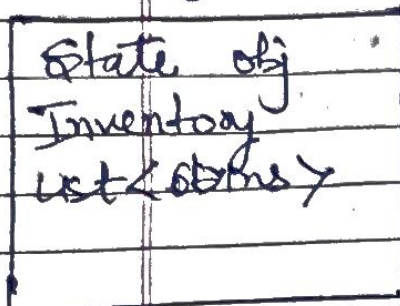 State obj
Inventory
List<items>